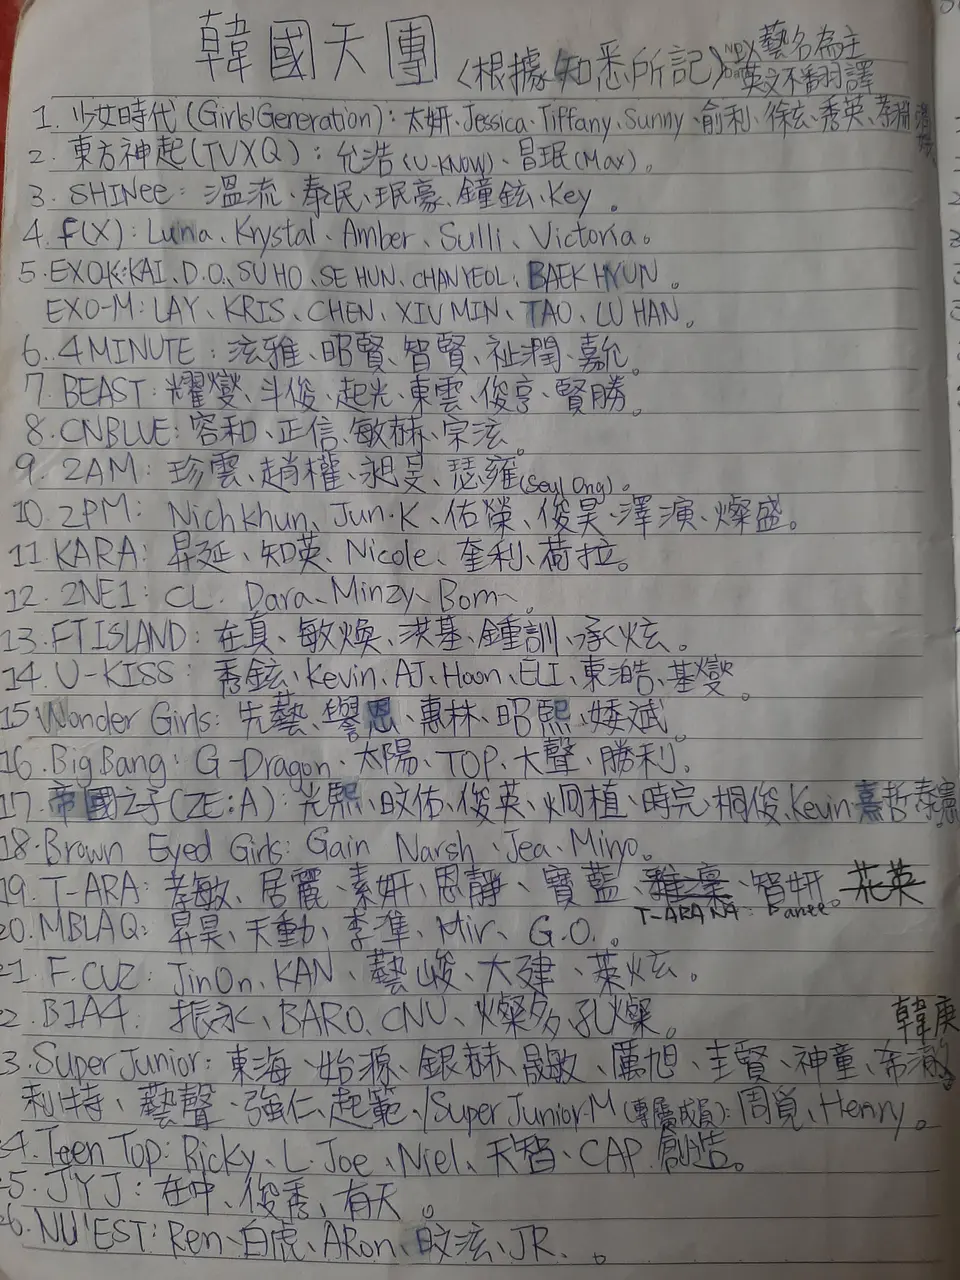 韓國天團(根據知悉所記)藝名為主
英文不翻譯
1. 少女時代(Girls'Generation): 太妍、Jessica、Tiffany、Sunny、俞利、徐玄、秀英、孝淵
2. 東方神起(TVXQ): 允浩(U-KNOW)、昌珉(Max)。
3. SHINee: 溫流、泰民、珉豪、鐘鉉、Key。
4. f(X): Luna、Krystal、Amber、Sulli、Victoria。
5. EXOK:KAI、D.O、SUHO、SE HUN、CHANYEOL、BAEK HYUN。
EXO-M: LAY、KRIS、CHEN、XIUMIN、TAO、LU HAN。
6. 4MINUTE: 泫雅、昭賢、智賢、祉潤、嘉允。
7. BEAST: 耀燮、斗俊、起光、東雲、俊亨、賢勝。
8. CNBLUE: 容和、正信、敏赫、宗泫。
9. 2AM: 珍雲、趙權、昶旻、瑟雍(Seul Ong)。
10. 2PM: Nichkhun、Jun.K、佑榮、俊昊、澤演、燦盛。
11. KARA: 昇延、知英、Nicole、奎利、荷拉。
12. 2NE1: CL、Dara、Minzy、Bom。
13. FTISLAND: 在真、敏煥、洪基、鍾訓、承炫。
14. U-KISS: 秀鉉、Kevin、AJ、Hoon、ELI、東浩、基燮。
15 Wonder Girls: 先藝、譽恩、惠林、昭熙、婑斌
16. BigBang: G-Dragon、太陽、TOP、大聲、勝利。
17. 帝國之子(ZE:A): 光熙、旼佑、俊英、炯植、時完、桐俊、Kevin、熹哲、泰憲。
18. Brown Eyed Girls: Gain、Narsh、Jea、Miryo。
19. T-ARA: 孝敏、居麗、素妍、恩靜、寶藍、雅凜、智妍。花英
T-ARA N4:
20. MBLAQ: 昇昊、天動、李準、Mir、G.O.。
21. F.CUZ: JinOn、KAN、藝峻、大建、萊炫。
2. B1A4: 振永、BARO、CNU、燦多、孔燦。
韓庚
3. Super Junior: 東海、始源、銀赫、晟敏、厲旭、圭賢、神童、希澈、
利特、藝聲、強仁、起範、/Super Junior-M(專屬成員): 周覓、Henry。
4. Teen Top: Ricky、L.Joe、Niel、天智、CAP、創造。
5. JYJ: 在中、俊秀、有天。
6. NU'EST: Ren、白虎、ARon、旼泫、JR.。